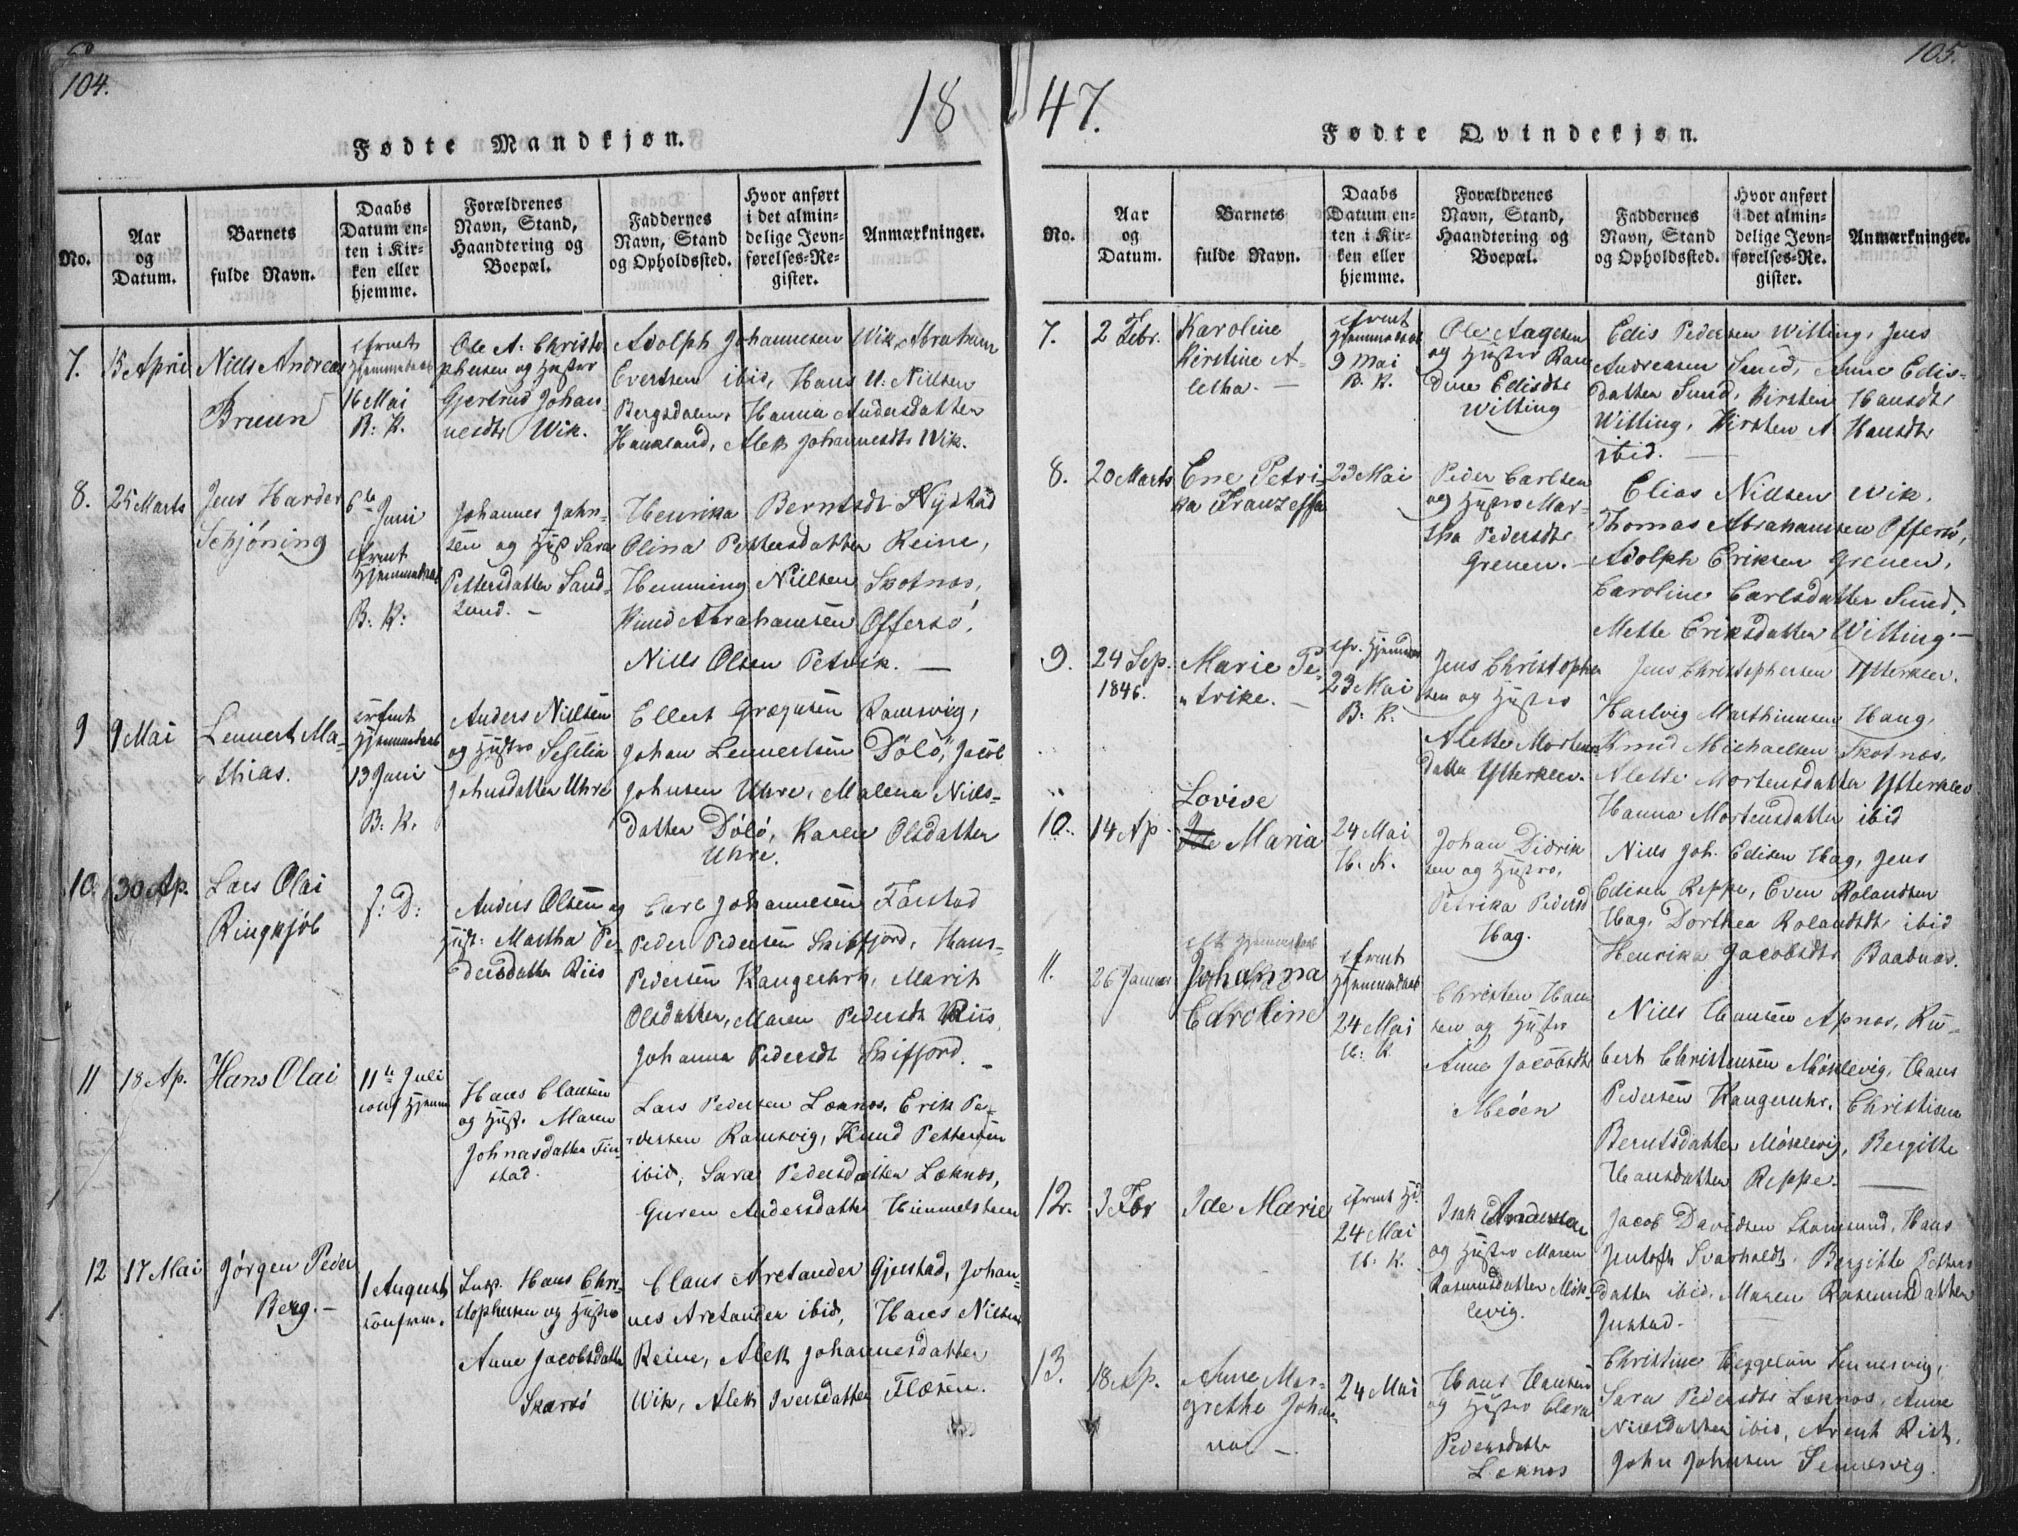 104.
18
Fødte Mandkjøn.
No.
Aar
og
Datum.
Barnets
fulde Navn.
Daabs
Datum en-
ten i Kir-
ken eller
hjemme.
Forældrenes
Navn, Stand,
Haandtering og
Boepæl.
Faddernes
Navn, Stand
og Opholdssted.
Hvor anført
i det almin-
delige Jevn-
førelses-Re-
gister.
Anmærkninger.
7.
15 April
Nills Andreas
Bruun
efrent
Hjemmedaab
16 Mai
B: K.
Ole A. Christo
phersen og Hustro
Gjertrud Johan-
nesdtr Wik.
Adolph Johannesen Wik, Abraham
Evertsen ibid, Hans U. Nillsen
Bergsdalen, Hanna Andersdatter
Haukland, Alet Johannesdtr Wik.
8.
25 Marts
Jens Harder
Schjøning
6te Juni
efrent
Hjemmedaab
B: K:
Johannes John-
sen og Hust Sara
Pettersdatter Sand-
sund. –
Henrika Berntsdt Nystad
Olina Pettersdatter Reine,
Hemming Nillsen Skotnæs,
Knud Abrahamsen Offersø,
Niels Olsen Petvik. —
9
9 Mai
Lennert Ma-
"thias.
Hjemmedaab
13 Juni
B: K.
Anders Nillsen
og Hustro Sesilia
Johnsdatter Uhre
Ellert Grægusen Ramsvig,
Johan Lennertsen Dölö, Jacob
Johnsen Uhre, Malena Niels-
datter Dölö, Karen Olsdatter
Uhre.
10.
30 Ap.
Lars Olai
Ringkjøb
J: D:
Anders Olsen og
Hust: Martha Pe-
dersdatter Riis
Carl Johannesen Farstad
Peder Pedersen Skifjord, Hans
Pedersen Kangerurh, Marit
Olsdatter, Maren Pedersdt Riis,
Johanna Pedersdt Skifjord. –
11
18 Ap.
Hans Olai
11te Juli
conf Hjemm
Hans Clausen
og Hust. Maren
Johnasdatter Fin-
stad.
Lars Pedersen Leknes, Erik Pe-
"dersen Ramsvig, Knud Pettersen
ibid, Sara Pedersdatter Leknæs,
Guren Andersdatter Himmelstein
12
17 Mai
Jørgen Peder
Berg. –
1 August
confrm.
Insp. Hans Chri-
stophersen og Hustro
Anne Jacobsdatter
Skarsö
Claus Aretander Gjerstad, Johan-
nes Aretander ibid, Hans Nilsen
Reine, Alet Johannesdatter
Wik, Alet Iversdatter Flæsen.
105.
47.
Fødte Qvindekjøn.
No.
Aar
og
Datum.
Barnets
fulde Navn.
Daabs
Datum en-
ten i Kir-
ken eller
hjemme.
Forældrenes
Navn, Stand,
Haandtering og
Boepæl.
Faddernes
Navn, Stand
og Opholdssted.
Hvor anført
i det almin-
delige Jevn-
førelses-Re-
gister.
Anmærkninger.
7.
2 Febr.
Karoline
Kirstine A-
letha. —
efrent
Hjemmedaab
9 Mai
B. K.
Ole Aagesen
og Hustro Karen
dine Edisdtr
Witting
Edis Pedersen Witting, Jens
Andreasen Sund, Anne Edis-
datter Sund, Kirsten Hansdtr
Witting, Kirsten A. Hansdtr
ibid. —
8.
20 Marts
Ene Petri-
ka Franzessa
23 Mai
Peder Carlsen
og Hustro Mar-
tha Pedersdtr
Grenen. –
Elias Nielsen Wik,
Thomas Abrahamsen Offersö,
Adolph Eriksen Grenen,
Caroline Carlsdatter Sund,
Mette Eriksdatter Witting. –
9.
24 Sep.
1846.
Marie Pe-
"trike. –
efr. Hjemmed
23 Mai
B. K.
Jens Christopher
sen og Hustro
Alette Mortens
datter Ytterklev.
Jens Christophersen Ytterklev.
Hartvig Marthinusen Haug,
Knud Michaelsen Skotnæs,
Alette Mortensdatter Ytterklev
Hanna Mortensdatter ibid
10.
14 Ap.
Lovise
Ide Maria
24 Mai
H. K.
Johan Didrik
sen og Hustro,
Petrika Pedersd
Hag.
Niels Joh. Edisen Hag, Jens
Edisen Reppe, Even Rolandsen
Hag, Dorthea Rolandsdt ibid
Henrika Jacobsdtr Baadnæs.
11.
26 Januar
Johanna
Caroline
efrent
Hjemmedaab
24 Mai
H: K
Christen Han
sen og Hustro
Anne Jacobsdt
Meöen
Niels Hansen Apnæs, Ru-
bert Christensen Mörlevig, Hans
Pedersen Kangerurh. Christiane
Berntsdatter Möslevig, Bergitte
Hansdatter Reppe. —
12.
3 Fbr
Ide Marie
efrent Hj.
24 Mai
H. K.
Isak Andersen
og Hustro Maren
Rasmusdatter Mör-
levig.
Jacob Davidsen Stamsund, Hans
Jentoft Svarholdt, Bergitte Petters
datter ibid, Maren Rasmusdatter
Justad.
13.
18 Ap.
Anne Mar-
grethe Johan
na —.
24 Mai
Hans Hansen
og Hustro Clara
Pedersdatter
Leknæs
Christine Heggelun Sennesvig,
Sara Pedersdtr Leknæs, Anne
Nielsdatter ibid, Arent Rist,
John Johnsen Sennesvig.